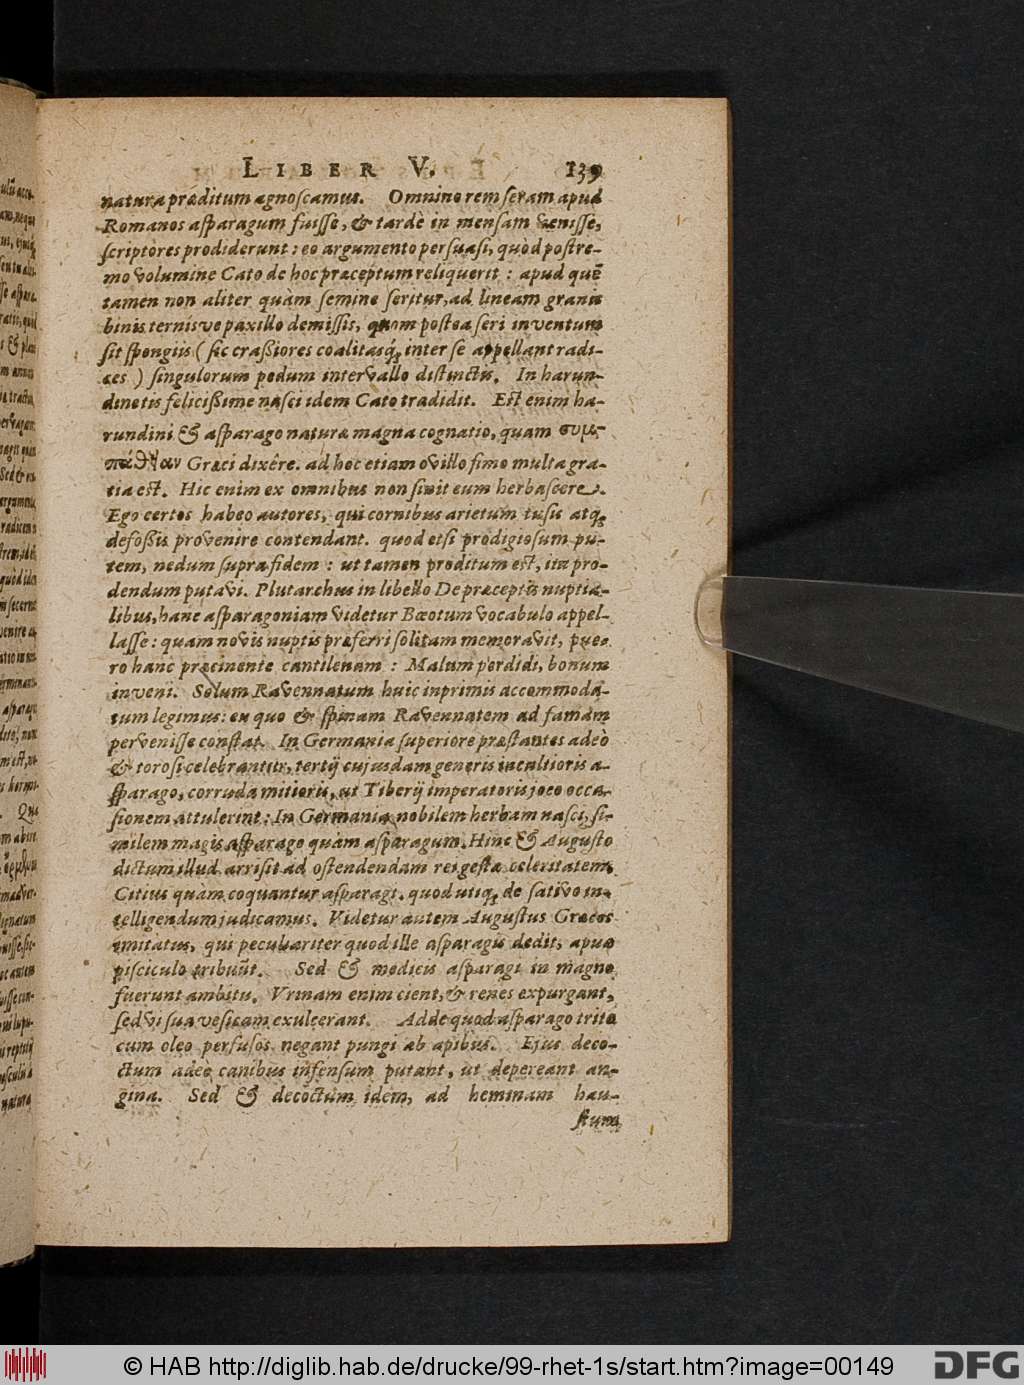 LIBER V. 139
natura præditum agnoscamus. Omnino rem seram apud
Romanos asparagum fuisse, & tardè in mensam venisse,
scriptores prodiderunt: eo argumento persuasi, quòd postre-
mo volumine Cato de hoc præceptum reliquerit: apud quē
tamen non aliter quàm semine seritur, ad lineam granis
binis ternisve paxillo demissis, quam postea seri inventum
sit spongiis (sic craßiores coalitasq́; inter se appellant radi-
ces) singulorum pedum intervallo distinctis. In harun-
dinetis felicißime nasci idem Cato tradidit. Est enim ha-
rundini & asparago naturæ magna cognatio, quam συμ-
πάθειαν Græci dixêre. ad hoc etiam ovillo fimo multa gra-
tia est. Hic enim ex omnibus non sinit eum herbascere.
Ego certos habeo autores, qui cornibus arietum tusis atq;
defoßis provenire contendant. quod etsi prodigiosum pu-
tem, nedum supra fidem: ut tamen proditum est, ita pro-
dendum putavi. Plutarchus in libello De præceptis nuptia-
libus, hanc asparagoniam videtur Bœotum vocabulo appel-
lasse: quam novis nuptis præferri solitam memoravit, pue-
ro hanc præcinente cantilenam: Malum perdidi, bonum
inveni. Solum Ravennatum huic inprimis accommoda-
tum legimus: ex quo & spinam Ravennatem ad famam
pervenisse constat. In Germania superiore præstantes adeò
& torosi celebrantur, tertij cujusdam generis incultioris a-
sparago, corruda mitioris, ut Tiberij imperatoris joco occa-
sionem attulerint: In Germania nobilem herbam nasci, si-
milem magis asparago quàm asparagum. Hinc & Augusto
dictum illud arrisit ad ostendendam rei gestæ celeritatem,
Citius quàm coquantur asparagi. quod utiq; de sativo in-
telligendum judicamus. Videtur autem Augustus Græcos
imitatus, qui peculiariter quod ille asparagis dedit, apuæ
pisciculo tribuūt. Sed & medicis asparagi in magno
fuerunt ambitu. Vrinam enim cient, & renes expurgant,
sed vi sua vesicam exulcerant. Adde quod asparago trito
cum oleo perfusos negant pungi ab apibus. Ejus deco-
ctum adeò canibus infensum putant, ut depereant an-
gina. Sed & decoctum idem, ad heminam hau-
stum
© HAB http://diglib.hab.de/drucke/99-rhet-1s/start.htm?image=00149
DFG